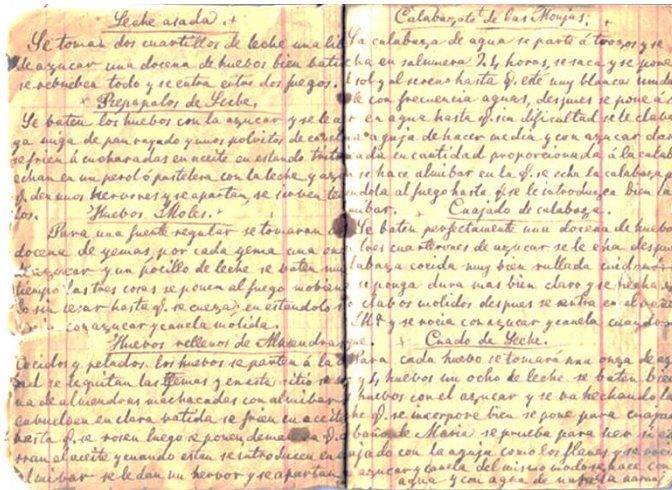 Leche asada.
Se toman dos cuartillos de leche una lib
de azucar una docena de huebos bien bati
se rebuelben todo y se entra entre dos fuegos.
Repapalos de Leche.
Se baten los huebos con la azucar y se le a
ga miga de pan rayado y unos polvitos de canela
se frien á cucharadas en aceite en estando fritos
echan en un perol ó partelera con la leche y azu
q. den unos hervores y se apartan, se sirven
los.
Huevos Moles.
Para una fuente regular se tomaran
docena de yemas, por cada yema una on
azucar y un pocillo de leche se baten
tiempo las tres cosas se ponen al fuego mobien
sin cesar hasta q. se cueza, en estandolo s
con azucar y canela molida.
Huevos rellenos de Almendras
Cocidos y pelados, los huevos se parten á la
se le quitan las yemas y en este sitio se
na de almendras machacadas con almibar
enbuelven en clara vatida se frien en aceite
hasta q. se rosen luego se ponen
rran el aceite y cuando estan se introducen en
almibar se le dan un hervor y se apartan
Calabazate de las Monjas.
La calabaza de agua se parte á trozos y se
cha en salmuera 24 horas, se saca y se pone
l sol y al sereno hasta q. este muy blanca
le con frecuencia aguas, despues se pone á
r en agua hasta q. sin dificultad se le claba
a aguja de hacer media y con azucar
en cantidad proporcionada á la calab
se hace almibar en la q. se echa la calabaza
ndola al fuego hasta q. se le introduzca bien
mibar.
Cuajado de calabaza.
Se baten perfectamente una docena de huebo
tres cuarterones de azucar se le echa despues
labaza cocida muy bien rallada cuidando
se ponga dura mas bien claro y se hecha
clabos molidos despues se entra en el
y se rocia con azucar y canela cuando
que.
Cuado de Leche.
Para cada huevo se tomará una onza de az
y 4 huebos un ocho de leche se baten bien
huebos con el azucar y se va hechando la
he q. se incorpore bien se pone para cuajar
baño de Maria se prueba para ver si
ajado con la aguja como los flanes y se rocia
azucar y canela del mismo modo se hace con
agua y con agua de naranja